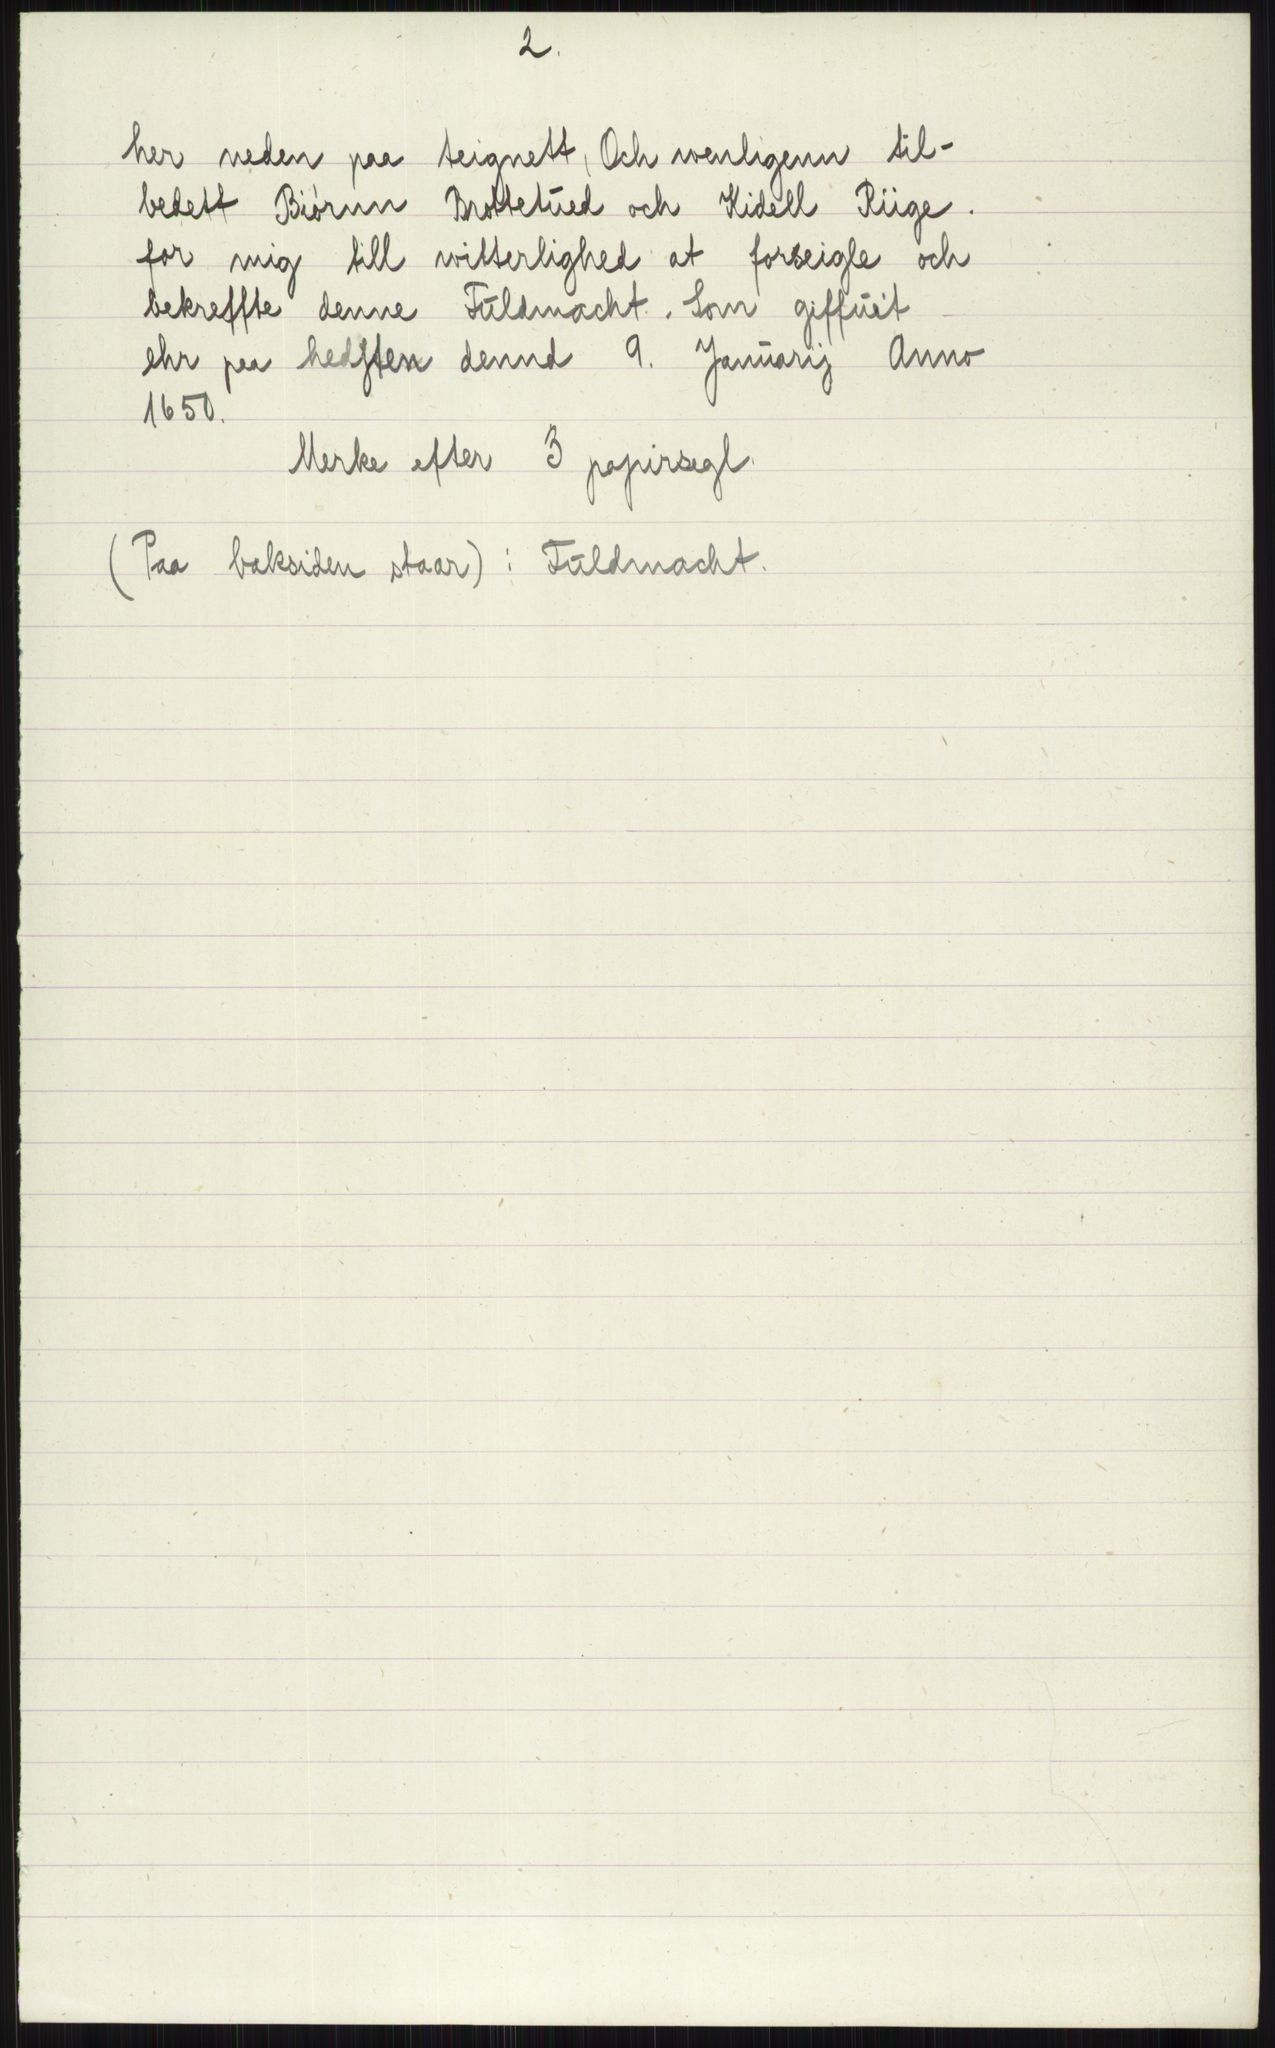 2.
her neden paa teignett, Och wenligenn til-
bedett Biørnn Brottetued och Kidell Riige.
for mig till witterlighed at forseigle och
bekreffte denne Fuldmacht. Som giffuit
ehr paa dennd 9. Januarij Anno
1650.
Merke efter 3 papirsegl.
(Paa baksiden staar): Fuldmacht.